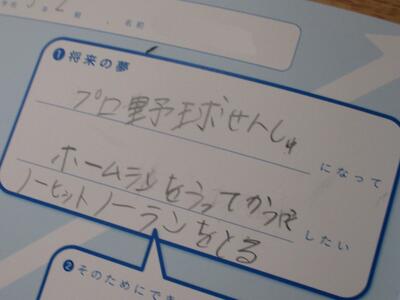 年 2 組 ・ 名前
1 将来の夢
プロ野球せんしゅ
になって
ホームランをうってかつ
したい
ノーヒットノーランをとる
2 そのためにでき